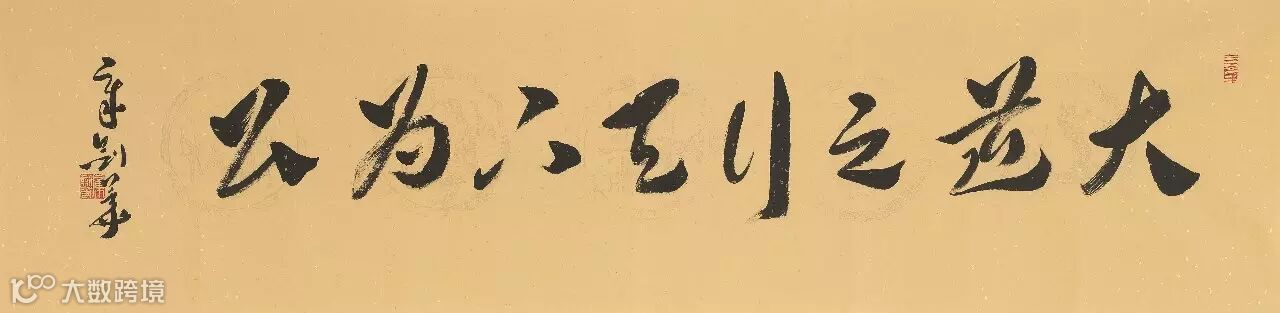 大道之行天下为公
章剑华
大数跨境